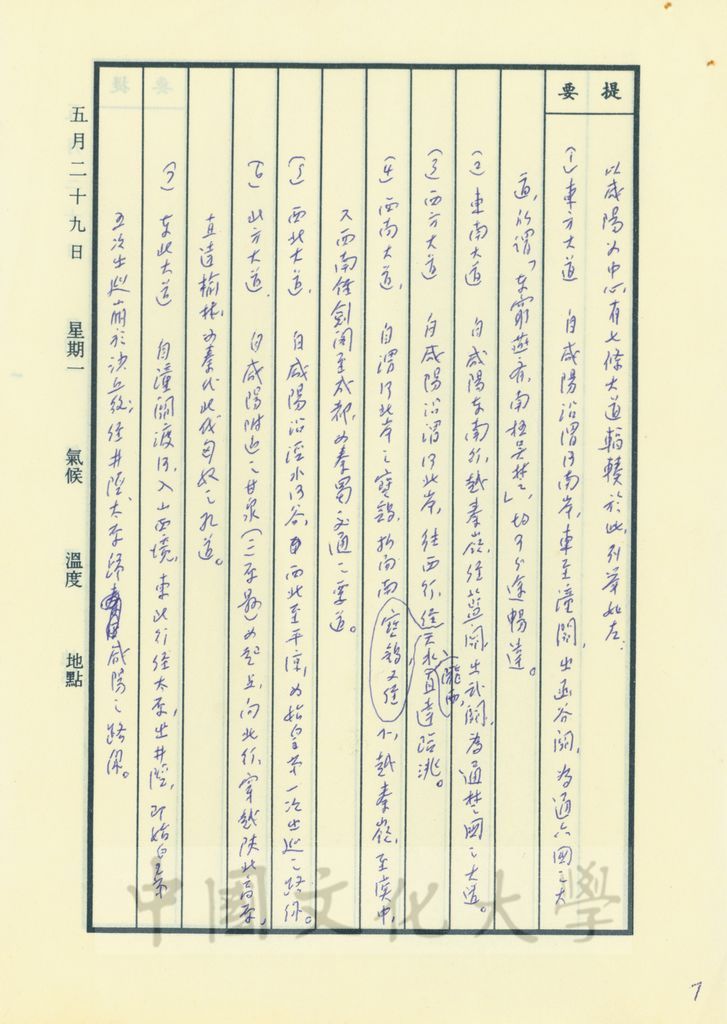 提要
以咸陽為中心，有七條大道輻輳於此，列舉如左：
(1) 東方大道 自咸陽沿渭河南岸，東至潼關，出函谷關，為通六國之大
道，所謂「東窮燕齊，南極吳楚」，切可以逾暢達。
(2) 東南大道 自咸陽東南行，越秦嶺，經藍關，出武關，為通楚國之大道。
(3) 西方大道 自咸陽沿渭河北岸，往西行，經天水、隴西，直達臨洮。
(4) 西南大道， 自渭河北岸之寶雞，折向南，寶雞又經 越秦嶺，至漢中，
又西南經劍閣至成都，為秦蜀交通之要道。
(5) 西北大道， 自咸陽沿涇水河谷，西北至平涼，為始皇第一次出巡之路線。
(6) 北方大道， 自咸陽附近之甘泉(三原縣)為起點，向北行，穿越陝北高原，
直達榆林，為秦代北伐匈奴之孔道。
(7) 東北大道 自潼關渡河，入山西境，東北行經太原，出井陘，即始皇第
五次出巡崩於沙丘後，經井陘、太原歸咸陽之路線。
五月二十九日 星期一 氣候 溫度 地點
7
中國文化大學